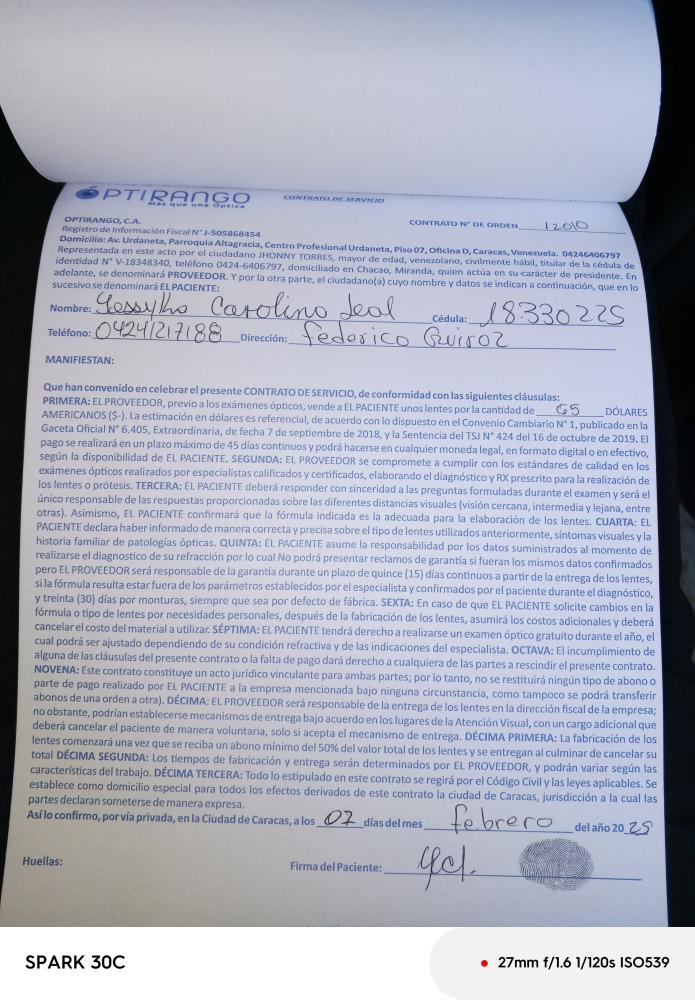 OPTIRANGO
Más que una Óptica
CONTRATO DE SERVICIO
OPTIRANGO, C.A.
CONTRATO N° DE ORDEN 12010
Registro de Información Fiscal N° J-505868454
Domicilio: Av. Urdaneta, Parroquia Altagracia, Centro Profesional Urdaneta, Piso 07, Oficina D, Caracas, Venezuela. 04246406797
Representada en este acto por el ciudadano JHONNY TORRES, mayor de edad, venezolano, civilmente hábil, titular de la cédula de
identidad N° V-18348340, teléfono 0424-6406797, domiciliado en Chacao, Miranda, quien actúa en su carácter de presidente. En
adelante, se denominará PROVEEDOR. Y por la otra parte, el ciudadano(a) cuyo nombre y datos se indican a continuación, que en lo
sucesivo se denominará EL PACIENTE:
Nombre: Carolina Leal Cédula: 18.330225
Teléfono: 04241217188 Dirección: Federico Quiroz
MANIFIESTAN:
Que han convenido en celebrar el presente CONTRATO DE SERVICIO, de conformidad con las siguientes cláusulas:
PRIMERA: EL PROVEEDOR, previo a los exámenes ópticos, vende a EL PACIENTE unos lentes por la cantidad de 65 DÓLARES
AMERICANOS ($-). La estimación en dólares es referencial, de acuerdo con lo dispuesto en el Convenio Cambiario N° 1, publicado en la
Gaceta Oficial N° 6.405, Extraordinaria, de fecha 7 de septiembre de 2018, y la Sentencia del TSJ N° 424 del 16 de octubre de 2019. El
pago se realizará en un plazo máximo de 45 días continuos y podrá hacerse en cualquier moneda legal, en formato digital o en efectivo,
según la disponibilidad de EL PACIENTE. SEGUNDA: EL PROVEEDOR se compromete a cumplir con los estándares de calidad en los
exámenes ópticos realizados por especialistas calificados y certificados, elaborando el diagnóstico y RX prescrito para la realización de
los lentes o prótesis. TERCERA: EL PACIENTE deberá responder con sinceridad a las preguntas formuladas durante el examen y será el
único responsable de las respuestas proporcionadas sobre las diferentes distancias visuales (visión cercana, intermedia y lejana, entre
otras). Asimismo, EL PACIENTE confirmará que la fórmula indicada es la adecuada para la elaboración de los lentes. CUARTA: EL
PACIENTE declara haber informado de manera correcta y precisa sobre el tipo de lentes utilizados anteriormente, síntomas visuales y la
historia familiar de patologías ópticas. QUINTA: EL PACIENTE asume la responsabilidad por los datos suministrados al momento de
realizarse el diagnostico de su refracción por lo cual No podrá presentar reclamos de garantía si fueran los mismos datos confirmados
pero EL PROVEEDOR será responsable de la garantía durante un plazo de quince (15) días continuos a partir de la entrega de los lentes,
si la fórmula resulta estar fuera de los parámetros establecidos por el especialista y confirmados por el paciente durante el diagnóstico,
y treinta (30) días por monturas, siempre que sea por defecto de fábrica. SEXTA: En caso de que EL PACIENTE solicite cambios en la
fórmula o tipo de lentes por necesidades personales, después de la fabricación de los lentes, asumirá los costos adicionales y deberá
cancelar el costo del material a utilizar. SÉPTIMA: EL PACIENTE tendrá derecho a realizarse un examen óptico gratuito durante el año, el
cual podrá ser ajustado dependiendo de su condición refractiva y de las indicaciones del especialista. OCTAVA: El incumplimiento de
alguna de las cláusulas del presente contrato o la falta de pago dará derecho a cualquiera de las partes a rescindir el presente contrato.
NOVENA: Este contrato constituye un acto jurídico vinculante para ambas partes; por lo tanto, no se restituirá ningún tipo de abono o
parte de pago realizado por EL PACIENTE a la empresa mencionada bajo ninguna circunstancia, como tampoco se podrá transferir
abonos de una orden a otra). DÉCIMA: EL PROVEEDOR será responsable de la entrega de los lentes en la dirección fiscal de la empresa;
no obstante, podrían establecerse mecanismos de entrega bajo acuerdo en los lugares de la Atención Visual, con un cargo adicional que
deberá cancelar el paciente de manera voluntaria, solo si acepta el mecanismo de entrega. DÉCIMA PRIMERA: La fabricación de los
lentes comenzará una vez que se reciba un abono mínimo del 50% del valor total de los lentes y se entregan al culminar de cancelar su
total DÉCIMA SEGUNDA: Los tiempos de fabricación y entrega serán determinados por EL PROVEEDOR, y podrán variar según las
características del trabajo. DÉCIMA TERCERA: Todo lo estipulado en este contrato se regirá por el Código Civil y las leyes aplicables. Se
establece como domicilio especial para todos los efectos derivados de este contrato la ciudad de Caracas, jurisdicción a la cual las
partes declaran someterse de manera expresa.
Así lo confirmo, por vía privada, en la Ciudad de Caracas, a los 07 días del mes febrero del año 2025
Huellas:
Firma del Paciente:
SPARK 30C
27mm f/1.6 1/120s ISO539